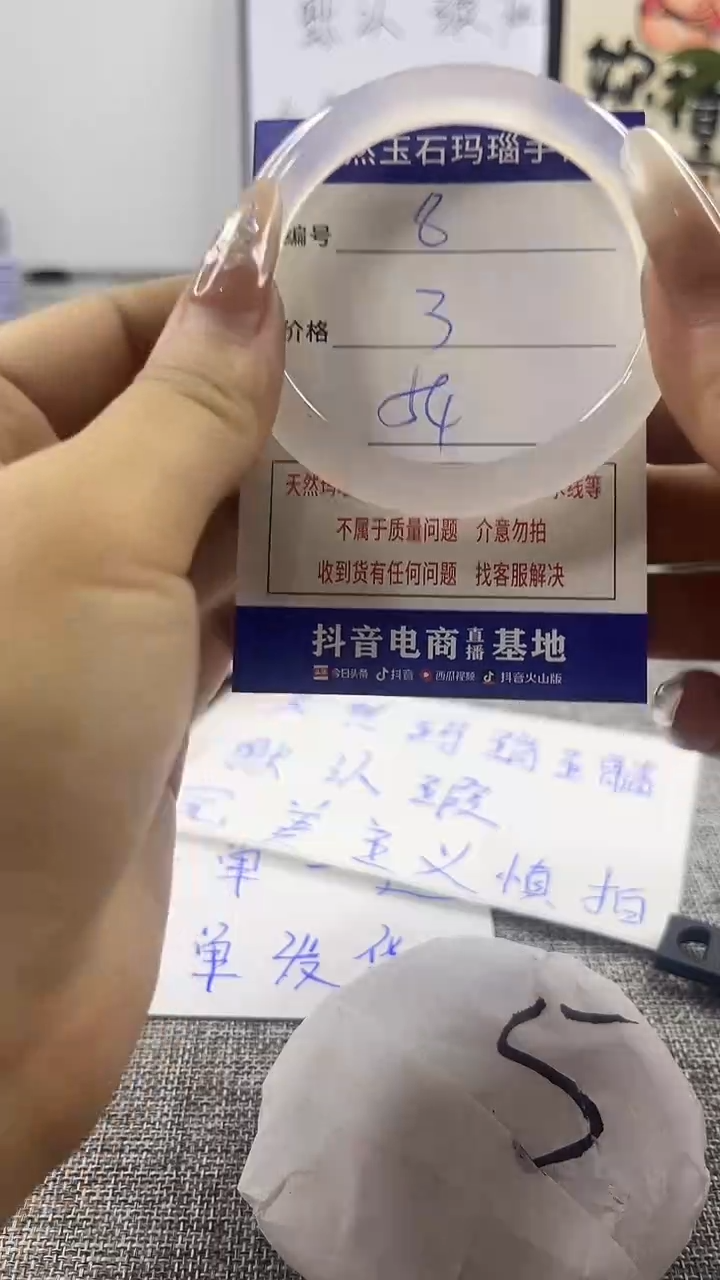 默认瑕
然玉石玛瑙手
编号 8
价格 3
54
天然玛
线等
不属于质量问题 介意勿拍
收到货有任何问题 找客服解决
抖音电商直播基地
今日头条 抖音 西瓜视频 抖音火山版
天然玛瑙玉髓
默认瑕
色差主义慎拍
单一
单发货
5